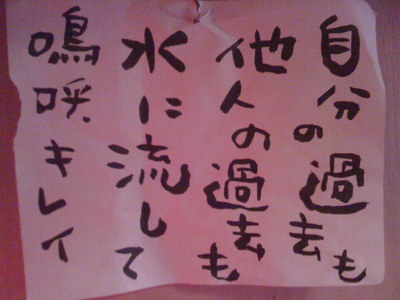 自分の過去も
他人の過去も
水に流して
嗚呼キレイ